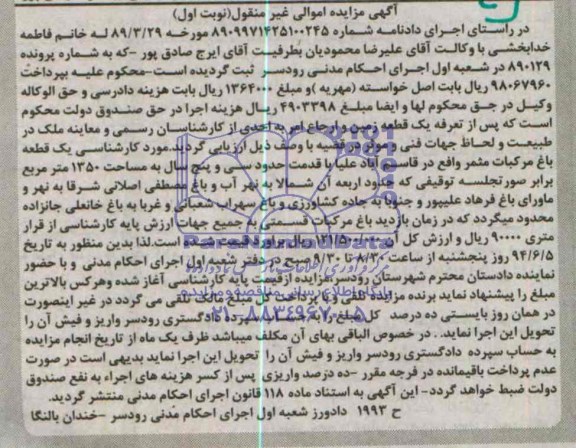 آگهی مزایده اموالی غیر منقول(نوبت اول)
در راستای اجرای دادنامه شماره ۸۹۰۹۹۷۱۴۲۵۱۰۰۲۴۵ مورخه ۸۹/۳/۲۹ له خانم فاطمه
خدابخشی با وکالت آقای علیرضا محمودیان بطرفیت آقای ایرج صادق پور -که به شماره پرونده
۸۹۰۱۲۹ در شعبه اول اجرای احکام مدنی رودسر ثبت گردیده است-محکوم علیه بپرداخت
۹۸۰۶۷۹۶۰ ریال بابت اصل خواسته (مهریه )و مبلغ ۱۳۶۴۰۰۰ ریال بابت هزینه دادرسی و حق الوکاله
وکیل در حق محکوم لها و ایضا مبلغ ۴۹۰۳۳۹۸ ریال هزینه اجرا در حق صندوق دولت محکوم
است که پس از تعرفه یک قطعه زمین و ارجاع امر به احدی از کارشناسان رسمی و معاینه ملک در
طبیعت و لحاظ جهات فنی و موثر در قضیه با وصف ذیل ارزیابی گردید.مورد کارشناسی یک قطعه
باغ مرکبات مثمر واقع در قاسم آباد علیا با قدمت حدود سی و پنج سال به مساحت ۱۳۵۰ متر مربع
برابر صورتجلسه توقیفی که حدود اربعه آن شمالا به نهر آب و باغ مصطفی اصلانی شرقا به نهر و
ماورای باغ فرهاد علیپور و جنوبا به جاده کشاورزی و باغ سهراب شعبانی و غربا به باغ خانعلی جانزاده
محدود میگردد که در زمان بازدید باغ مرکبات قسمتی به جمیع جهات ارزش پایه کارشناسی از قرار
متری ۹۰۰۰۰ ریال و ارزش کل آن ریال برآورد قیمت شده است.لذا بدین منظور به تاریخ
۹۴/۶/۵ روز پنجشنبه از ساعت ۸/۳۰ تا ۹/۳۰ صبح در دفتر شعبه اول اجرای احکام مدنی و با حضور
نماینده دادستان محترم شهرستان رودسر مزایده ازقیمت پایه کارشناسی آغاز شده وهرکس بالاترین
مبلغ را پیشنهاد نماید برنده مزایده تلقی و با پرداخت کل مبلغ مالک تلقی می گردد در غیر اینصورت
در همان روز بایستی ده درصد کل مبلغ را به حساب سپرده دادگستری رودسر واریز و فیش آن را
تحویل این اجرا نماید.. در خصوص الباقی بهای آن مکلف میباشد ظرف یک ماه از تاریخ انجام مزایده
به حساب سپرده دادگستری رودسر واریز و فیش آن را تحویل این اجرا نماید بدیهی است در صورت
عدم پرداخت باقیمانده در فرجه مقرر -ده درصد واریزی پس از کسر هزینه های اجراء به نفع صندوق
دولت ضبط خواهد گردد- این آگهی به استناد ماده ۱۱۸ قانون اجرای احکام مدنی منتشر گردید.
ح ۱۹۹۳ دادورز شعبه اول اجرای احکام مدنی رودسر -خندان بالنگا
۰۲۱-۸۸۳۴۹۶۷۰-۵